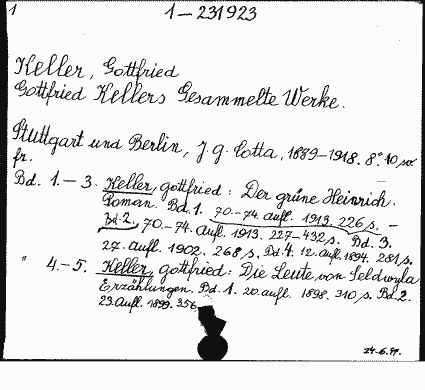 1 1-231923
Keller, Gottfried
Gottfried Kellers Gesammelte Werke.
Stuttgart und Berlin, J. G. Cotta, 1889-1918. 8° 10
fr.
Bd. 1.-3. Keller, Gottfried: Der grüne Heinrich.
Roman. Bd. 1. 70.-74. Aufl. 1913. 226 s. -
Bd. 2. 70.-74. Aufl. 1913. 227-432 s. Bd. 3.
27. Aufl. 1902. 268 s. Bd. 4. 12. Aufl. 1894. 281 s.
" 4.-5. Keller, Gottfried: Die Leute von Seldwyla
Erzählungen. Bd. 1. 20. Aufl. 1898. 310 s. Bd. 2.
23. Aufl. 1899. 356